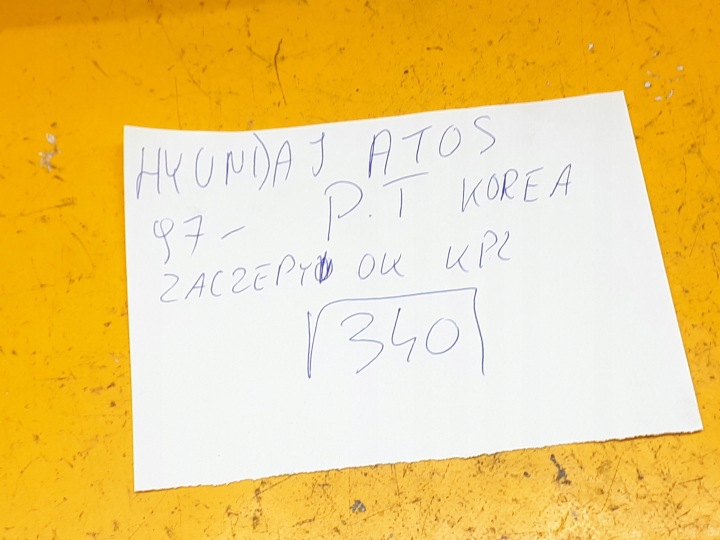 HYUNDAJ ATOS
P.T KOREA
97-
ZACZEPY OK KPL
340